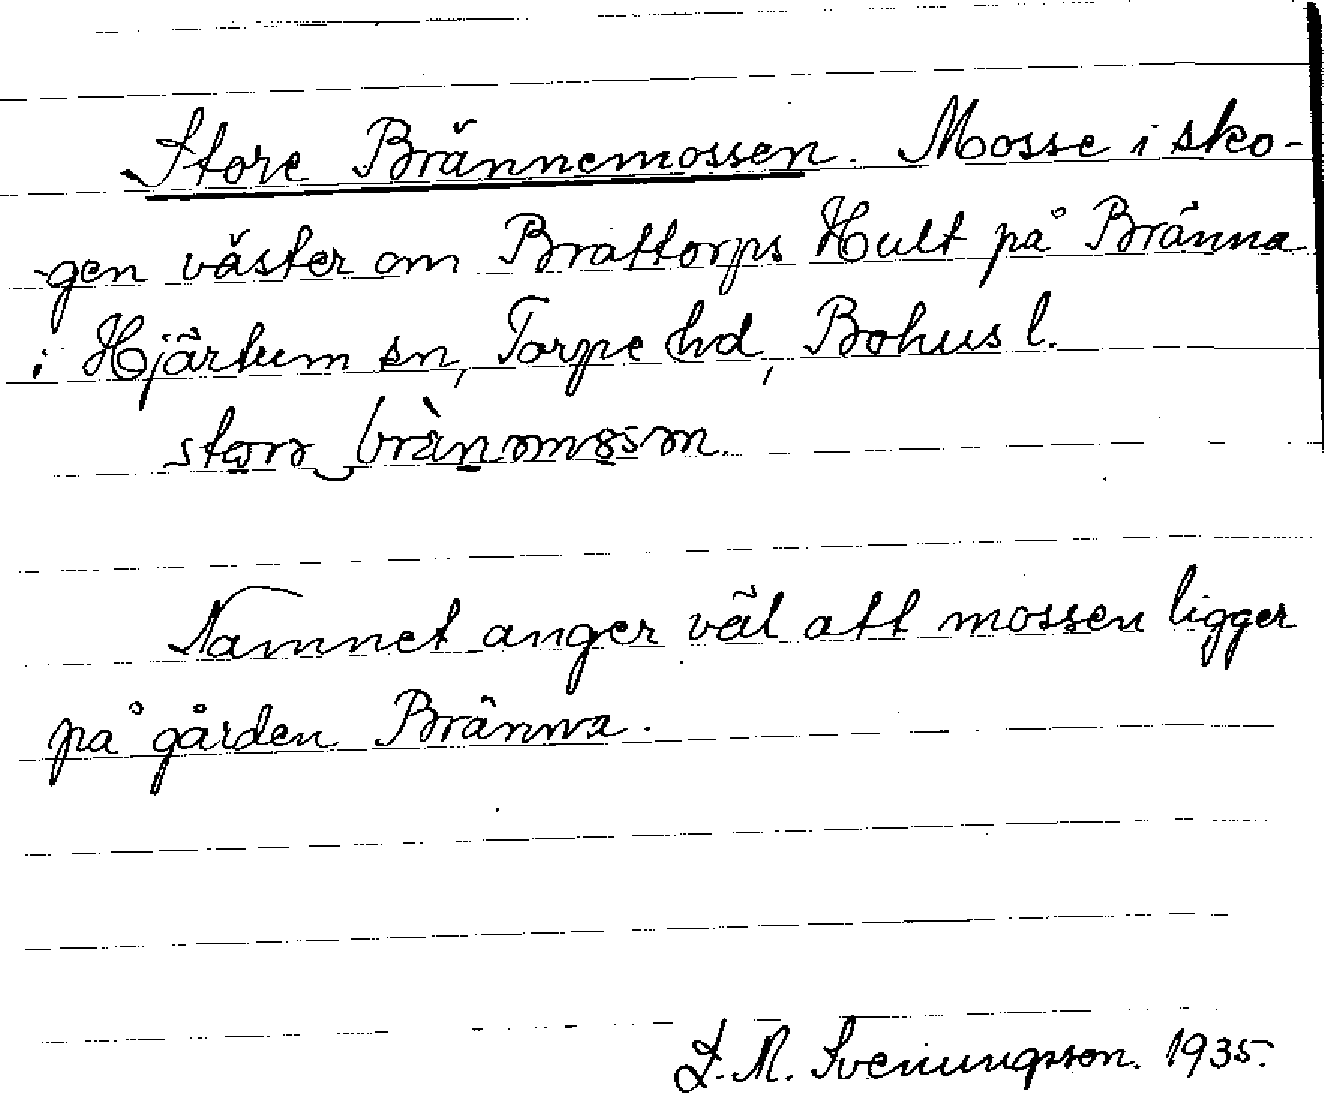 Store Brännemossen. Mosse i sko-
gen väster om Brattorps Hult på Bränna
i Hjärtum sn, Torpe hd, Bohus l.
Namnet anger väl att mossen ligger
på gården Bränna.
Svenungsson. 1935.